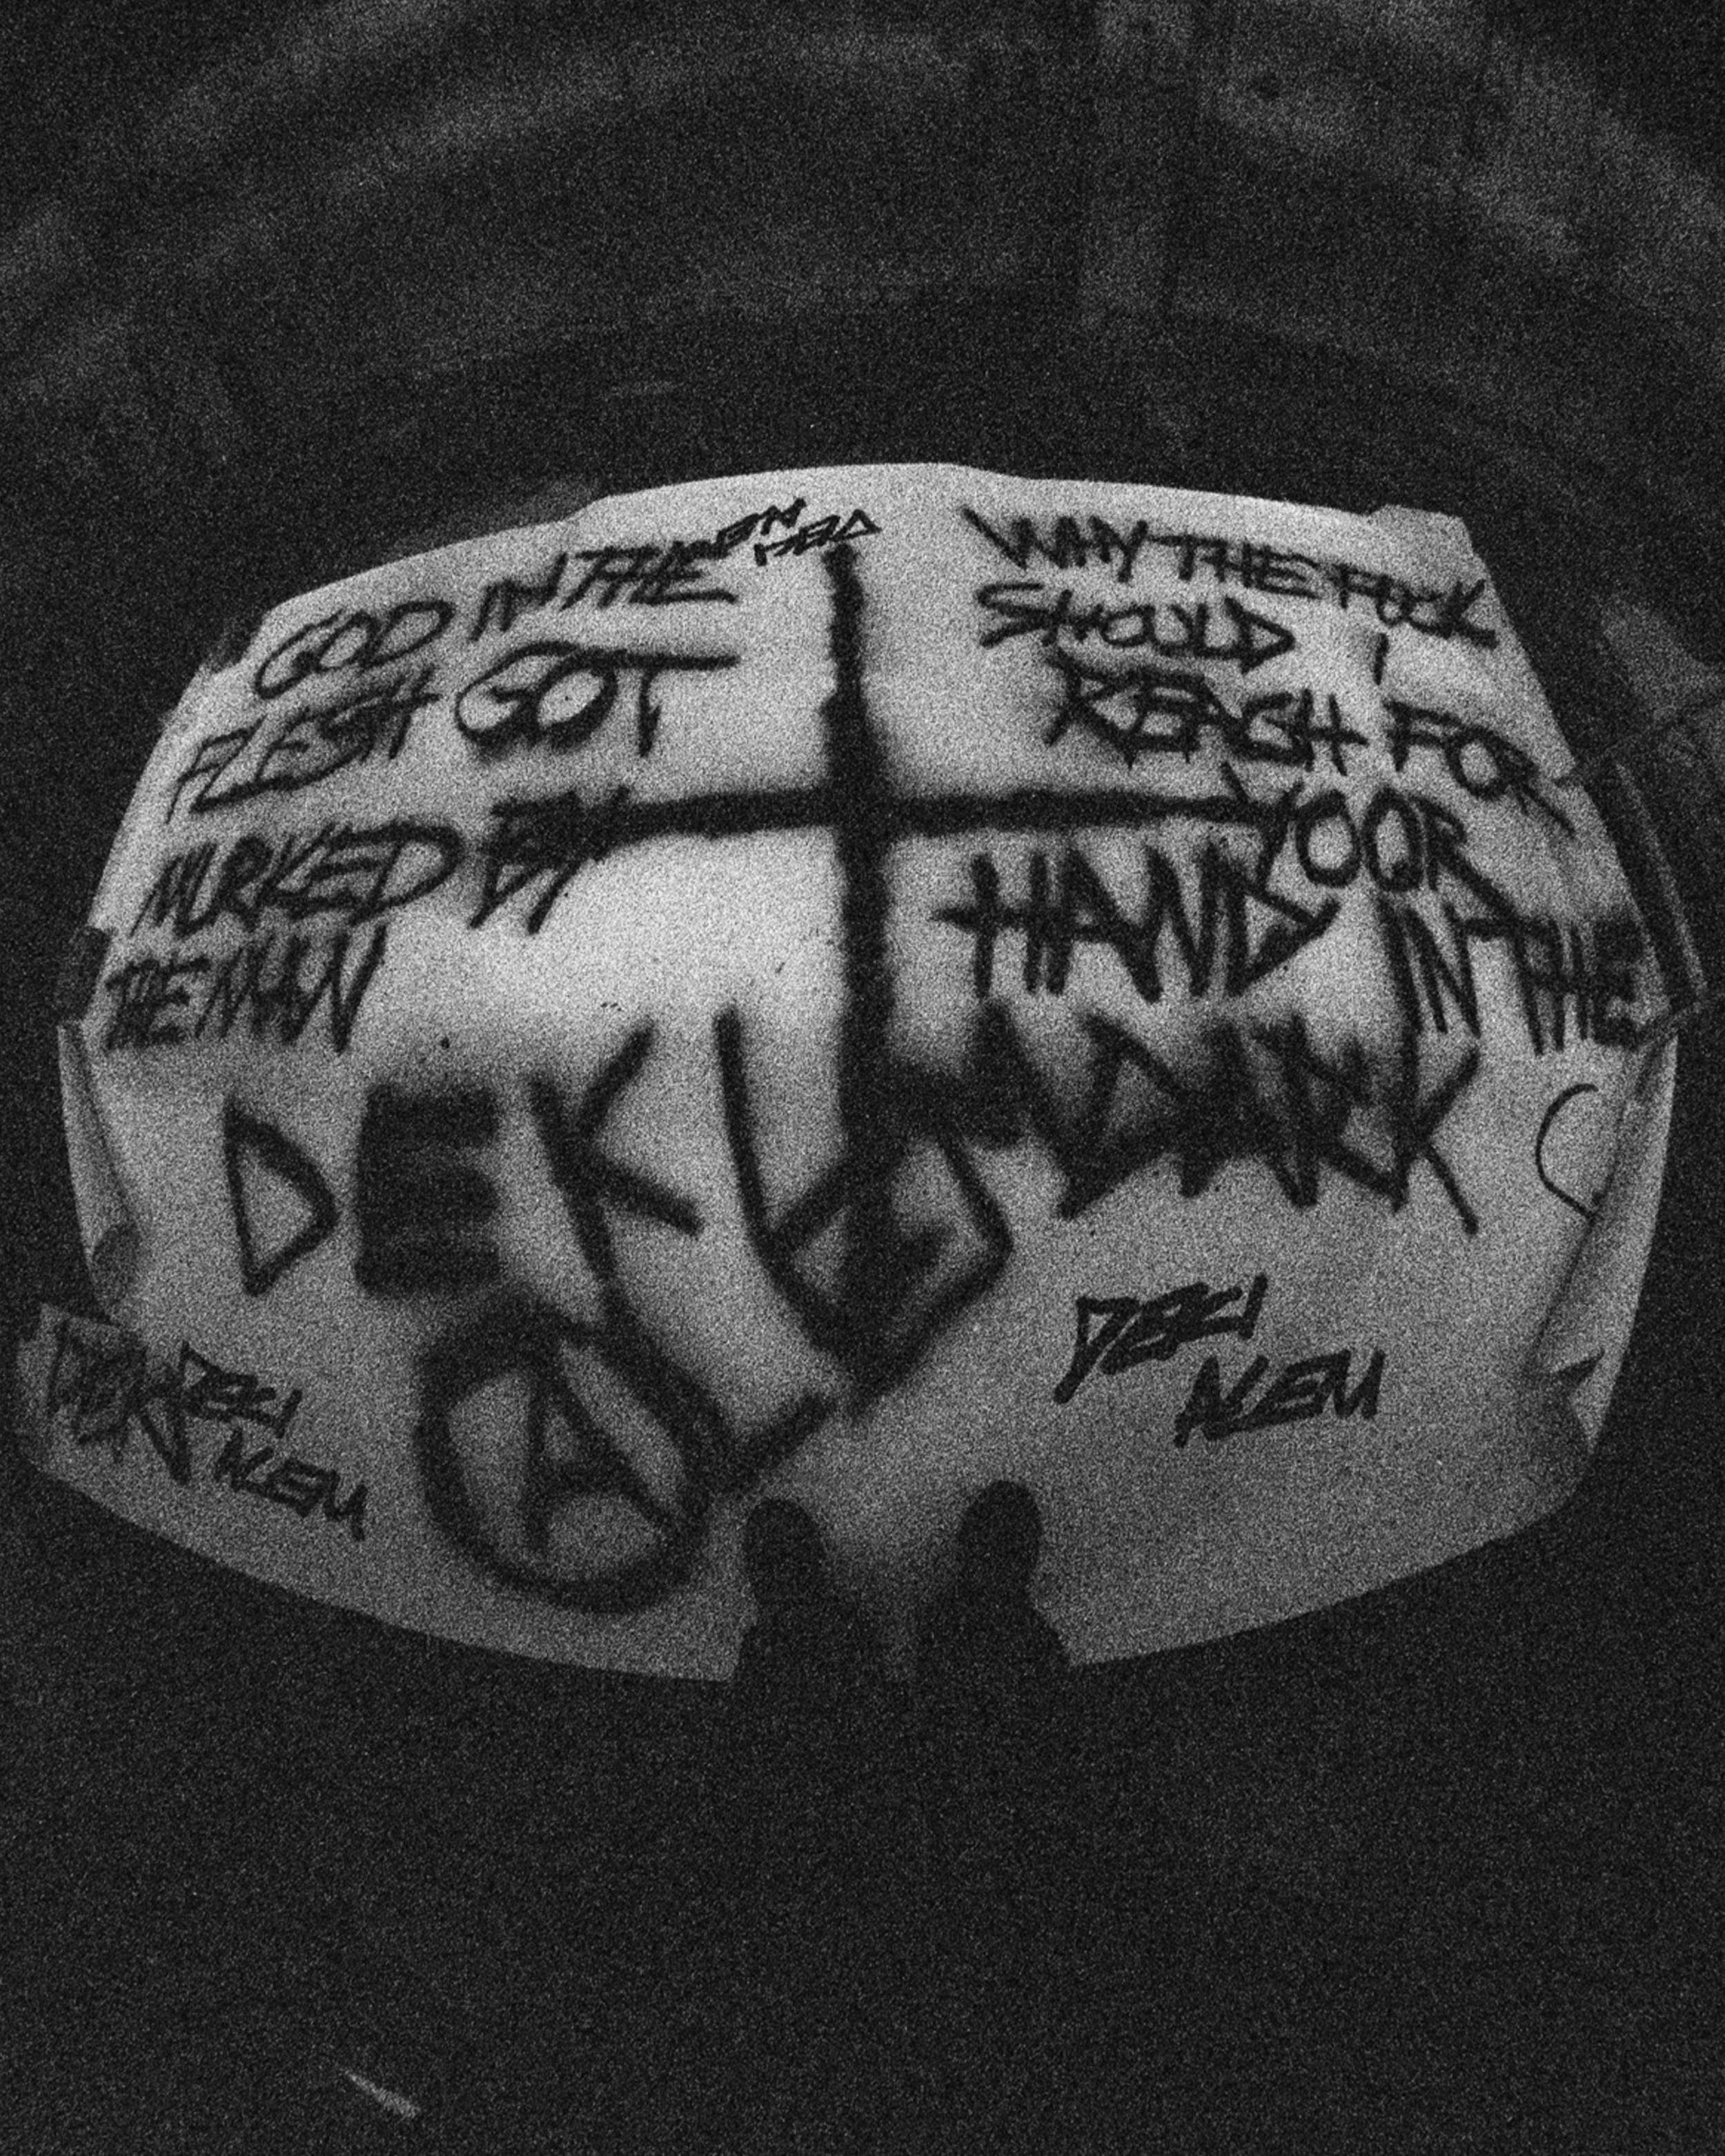 GOD IN THE
FLESH GOT
MURKED BY
THE MAN
WHY THE FUCK
SHOULD I
REACH FOR
YOUR
HAND IN THE
DARK
DEKI
ALEM
DEKI
ALEM
A